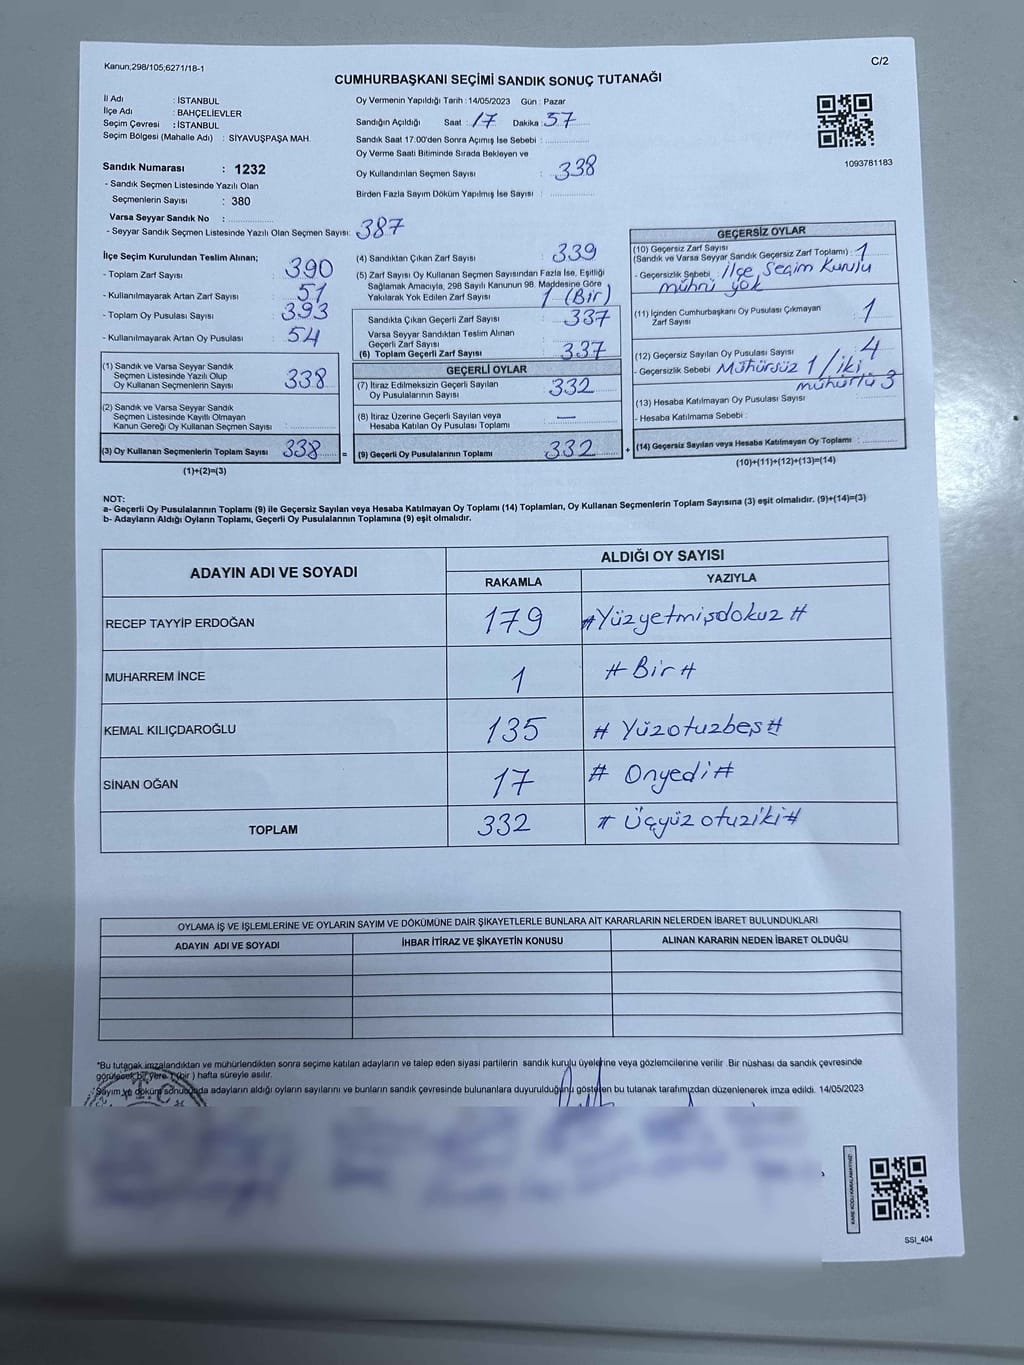 Kanun;298/105;6271/18-1
C/2
CUMHURBAŞKANI SEÇİMİ SANDIK SONUÇ TUTANAĞI
İl Adı : İSTANBUL
İlçe Adı : BAHÇELİEVLER
Seçim Çevresi : İSTANBUL
Seçim Bölgesi (Mahalle Adı) : SİYAVUŞPAŞA MAH.
Sandık Numarası : 1232
- Sandık Seçmen Listesinde Yazılı Olan
Seçmenlerin Sayısı : 380
Varsa Seyyar Sandık No :
- Seyyar Sandık Seçmen Listesinde Yazılı Olan Seçmen Sayısı: 387
Oy Vermenin Yapıldığı Tarih : 14/05/2023 Gün : Pazar
Sandığın Açıldığı Saat : 17 Dakika : 57
Sandık Saat 17.00'den Sonra Açımış İse Sebebi :
Oy Verme Saati Bitiminde Sırada Bekleyen ve
Oy Kullandırılan Seçmen Sayısı : 338
Birden Fazla Sayım Döküm Yapılmış İse Sayısı :
1093781183
İlçe Seçim Kurulundan Teslim Alınan;
- Toplam Zarf Sayısı : 390
- Kullanılmayarak Artan Zarf Sayısı : 51
- Toplam Oy Pusulası Sayısı : 393
- Kullanılmayarak Artan Oy Pusulası : 54
(1) Sandık ve Varsa Seyyar Sandık
Seçmen Listesinde Yazılı Olup
Oy Kullanan Seçmenlerin Sayısı : 338
(2) Sandık ve Varsa Seyyar Sandık
Seçmen Listesinde Kayıtlı Olmayan
Kanun Gereği Oy Kullanan Seçmen Sayısı :
(3) Oy Kullanan Seçmenlerin Toplam Sayısı : 338
(1)+(2)=(3)
(4) Sandıktan Çıkan Zarf Sayısı : 339
(5) Zarf Sayısı Oy Kullanan Seçmen Sayısından Fazla İse, Eşitliği
Sağlamak Amacıyla, 298 Sayılı Kanunun 98. Maddesine Göre
Yakılarak Yok Edilen Zarf Sayısı : 1 (Bir)
Sandıkta Çıkan Geçerli Zarf Sayısı : 337
Varsa Seyyar Sandıktan Teslim Alınan
Geçerli Zarf Sayısı :
(6) Toplam Geçerli Zarf Sayısı : 337
GEÇERLİ OYLAR
(7) İtiraz Edilmeksizin Geçerli Sayılan
Oy Pusulalarının Sayısı : 332
(8) İtiraz Üzerine Geçerli Sayılan veya
Hesaba Katılan Oy Pusulası Toplamı : —
= (9) Geçerli Oy Pusulalarının Toplamı : 332
GEÇERSİZ OYLAR
(10) Geçersiz Zarf Sayısı
(Sandık ve Varsa Seyyar Sandık Geçersiz Zarf Toplamı) : 1
- Geçersizlik Sebebi : İlçe Seçim Kurulu
mührü yok
(11) İçinden Cumhurbaşkanı Oy Pusulası Çıkmayan
Zarf Sayısı : 1
(12) Geçersiz Sayılan Oy Pusulası Sayısı : 4
- Geçersizlik Sebebi : Mühürsüz 1 / iki
mühürlü 3
(13) Hesaba Katılmayan Oy Pusulası Sayısı :
- Hesaba Katılmama Sebebi :
+ (14) Geçersiz Sayılan veya Hesaba Katılmayan Oy Toplamı :
(10)+(11)+(12)+(13)=(14)
NOT:
a- Geçerli Oy Pusulalarının Toplamı (9) ile Geçersiz Sayılan veya Hesaba Katılmayan Oy Toplamı (14) Toplamları, Oy Kullanan Seçmenlerin Toplam Sayısına (3) eşit olmalıdır. (9)+(14)=(3)
b- Adayların Aldığı Oyların Toplamı, Geçerli Oy Pusulalarının Toplamına (9) eşit olmalıdır.
ADAYIN ADI VE SOYADI
ALDIĞI OY SAYISI
RAKAMLA YAZIYLA
RECEP TAYYİP ERDOĞAN 179 #Yüzyetmişdokuz#
MUHARREM İNCE 1 #Bir#
KEMAL KILIÇDAROĞLU 135 #Yüzotuzbeş#
SİNAN OĞAN 17 #Onyedi#
TOPLAM 332 #Üçyüzotuziki#
OYLAMA İŞ VE İŞLEMLERİNE VE OYLARIN SAYIM VE DÖKÜMÜNE DAİR ŞİKAYETLERLE BUNLARA AİT KARARLARIN NELERDEN İBARET BULUNDUKLARI
ADAYIN ADI VE SOYADI İHBAR İTİRAZ VE ŞİKAYETİN KONUSU ALINAN KARARIN NEDEN İBARET OLDUĞU
*Bu tutanak imzalandıktan ve mühürlendikten sonra seçime katılan adayların ve talep eden siyasi partilerin sandık kurulu üyelerine veya gözlemcilerine verilir .Bir nüshası da sandık çevresinde
görülecek bir yere 1 (bir ) hafta süreyle asılır.
Sayım ve döküm sonucunda adayların aldığı oyların sayılarını ve bunların sandık çevresinde bulunanlara duyurulduğunu gösteren bu tutanak tarafımızdan düzenlenerek imza edildi. 14/05/2023
T.C
KARE KODU KARALAMAYINIZ!
SSI_404